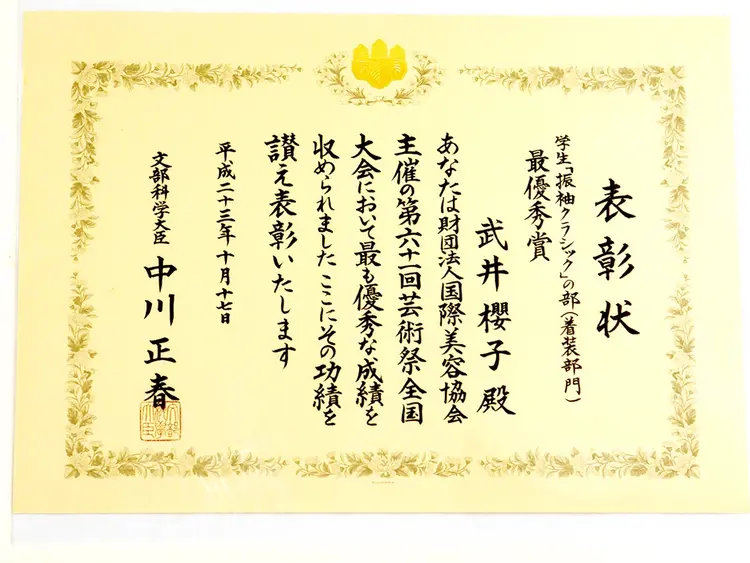 表彰状
学生「振袖クラシック」の部(着装部門)
最優秀賞
武井櫻子殿
あなたは財団法人国際美容協会
主催の第六十一回芸術祭全国
大会において最も優秀な成績を
収められましたここにその功績を
讃え表彰いたします
平成二十三年十月十七日
文部科学大臣 中川正春